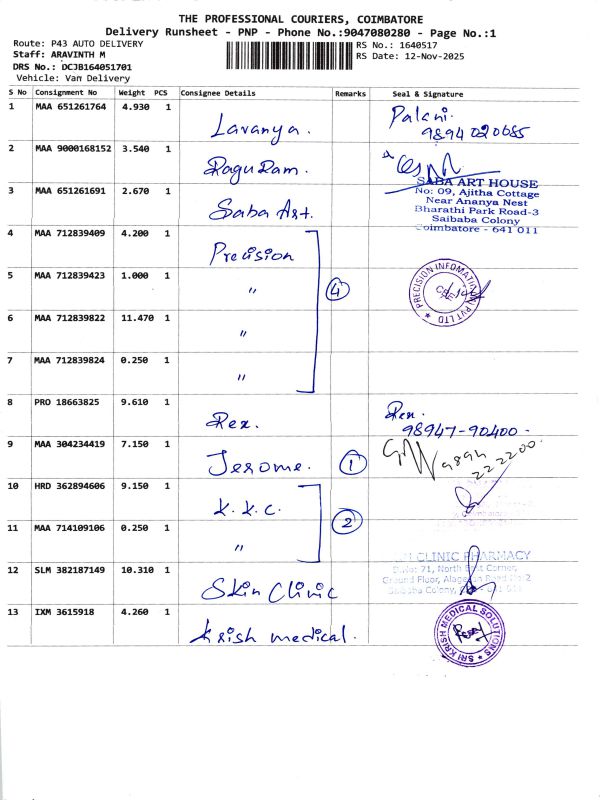 THE PROFESSIONAL COURIERS, COIMBATORE
Delivery Runsheet - PNP - Phone No.:9047080280 - Page No.:1
Route: P43 AUTO DELIVERY
Staff: ARAVINTH M
DRS No.: DCJB164051701
Vehicle: Van Delivery
RS No.: 1640517
RS Date: 12-Nov-2025
S No Consignment No Weight PCS Consignee Details Remarks Seal & Signature
1 MAA 651261764 4.930 1 Lavanya. Palani.
9894020685
2 MAA 9000168152 3.540 1 Ragu Ram.
3 MAA 651261691 2.670 1 Saba Art.
SABA ART HOUSE
No: 09, Ajitha Cottage
Near Ananya Nest
Bharathi Park Road-3
Saibaba Colony
Coimbatore - 641 011
4 MAA 712839409 4.200 1 Precision
5 MAA 712839423 1.000 1 "
4
PRECISION INFOMATIC PVT LTD
6 MAA 712839822 11.470 1 "
7 MAA 712839824 0.250 1 "
8 PRO 18663825 9.610 1 Rex. Rex.
98947-90400-
9 MAA 304234419 7.150 1 Jerome. 1
9894
222200.
10 HRD 362894606 9.150 1 K.K.C.
2
11 MAA 714109106 0.250 1 "
12 SLM 382187149 10.310 1 Skin Clinic
CLINIC PHARMACY
71, North East Corner,
Ground Floor,
Saibaba Colony,
13 IXM 3615918 4.260 1 Krish medical.
SRI KRISH MEDICAL SOLUTIONS